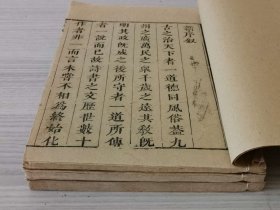 新序叙
古之治天下者一道德同風俗蓋九
州之廣萬民之衆千歲之遠其教既
明其政既成之後所守者一道所傳
者一說而已故詩書之文歷世數十
作者非一而言未嘗不相為終始化